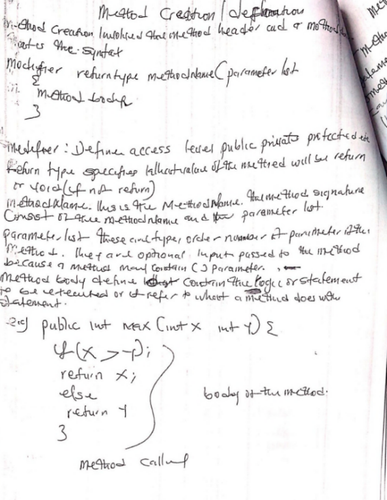 Method Creation / definition
Method Creation involves the method header and a method
the syntax
modifier returntype methodName (parameter list
{
method body
}
modifier: Define access level public private protected
Return type specifies the value of the method will be return
or void (if not return)
methodName. this is the MethodName. The method signature
Consist of the method Name and parameter list.
parameter list These are types, order number of parameter of the
Method. They are optional. Input passed to the method
because a method may contain () parameter.
Method body define contain the logic or statement
to be executed or it refer to what a method does with
statement.
public int max (int x int y) {
if (x > y);
return x;
else
return y
}
body of the method.
method called